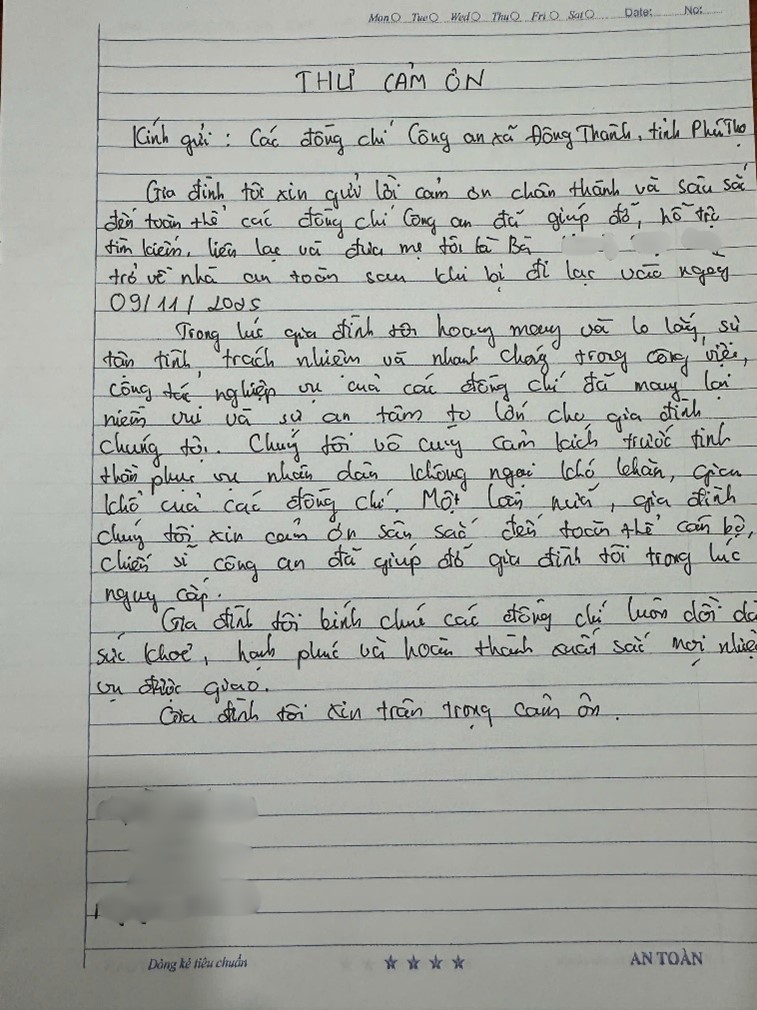 Mon Tue Wed Thu Fri Sat Date: No:
THƯ CẢM ƠN
Kính gửi : Các đồng chí Công an xã Đông Thành, tỉnh Phú Thọ
Gia đình tôi xin gửi lời cảm ơn chân thành và sâu sắc
đến toàn thể các đồng chí Công an đã giúp đỡ, hỗ trợ
tìm kiếm, liên lạc và đưa mẹ tôi là Bà
trở về nhà an toàn sau khi bị đi lạc vào ngày
09/11/2025
Trong lúc gia đình tôi hoang mang và lo lắng, sự
tận tình, trách nhiệm và nhanh chóng trong công việc,
công tác nghiệp vụ của các đồng chí đã mang lại
niềm vui và sự an tâm to lớn cho gia đình
chúng tôi. Chúng tôi vô cùng cảm kích trước tinh
thần phục vụ nhân dân không ngại khó khăn, gian
khổ của các đồng chí. Một lần nữa, gia đình
chúng tôi xin cảm ơn sâu sắc đến toàn thể cán bộ,
chiến sĩ công an đã giúp đỡ gia đình tôi trong lúc
nguy cấp.
Gia đình tôi kính chúc các đồng chí luôn dồi dà
sức khoẻ, hạnh phúc và hoàn thành xuất sắc mọi nhiệ
vụ được giao.
Gia đình tôi xin trân trọng cảm ơn.
Dòng kẻ tiêu chuẩn ★ ★ ★ ★ AN TOÀN